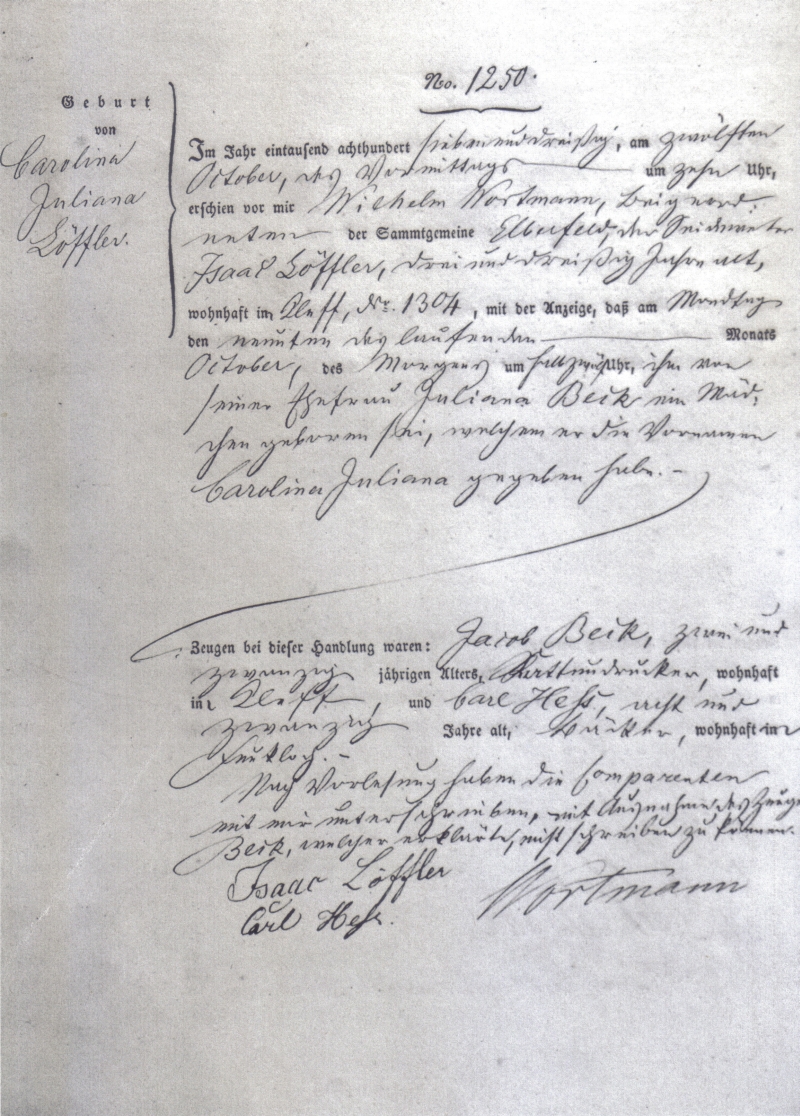 No. 1250.
Geburt
von
Carolina
Juliana
Löffler.
Im Jahr eintausend achthundert siebenunddreißig, am zwölften
October, des Vormittags um zehn Uhr,
erschien vor mir Wilhelm Wortmann, Beigeord-
neten der Sammtgemeine Elberfeld, der
Isaac Löffler, drei und dreißig Jahre alt,
wohnhaft in Kleff, Nr. 1304, mit der Anzeige, daß am Mondtag
den neunten des laufenden Monats
October, des Morgens um Uhr, ihm von
seiner Ehefrau Juliana Beck ein Mäd-
chen geboren sei, welchem er die Vornamen
Carolina Juliana gegeben habe.-
Zeugen bei dieser Handlung waren: Jacob Beck, zwei und
zwanzig jährigen Alters, Kattundrucker, wohnhaft
in Kleff, und Carl Hess, acht und
zwanzig Jahre alt, Bäcker, wohnhaft in
Nach Vorlesung haben die Comparenten
mit mir unterschrieben, mit Ausnahme des Zeugen
Beck, welcher erklärte, nicht schreiben zu können.
Isaac Löffler
Wortmann
Carl Hess.